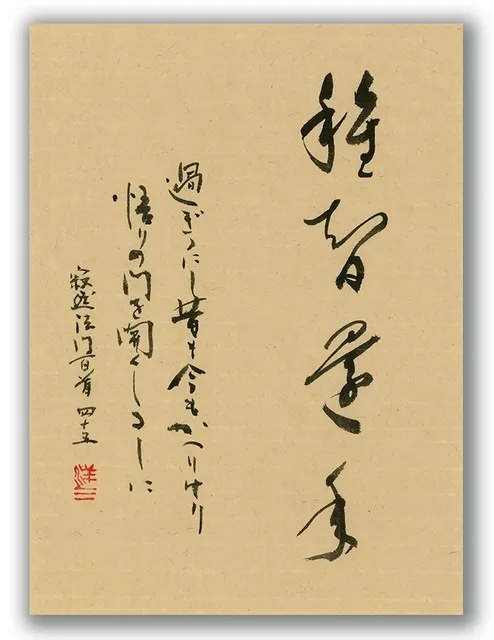 種智還年
過ぎつにし昔も今もかへりけり
悟りの門を開くしるしに
寂然法門百首 四十五
洋三